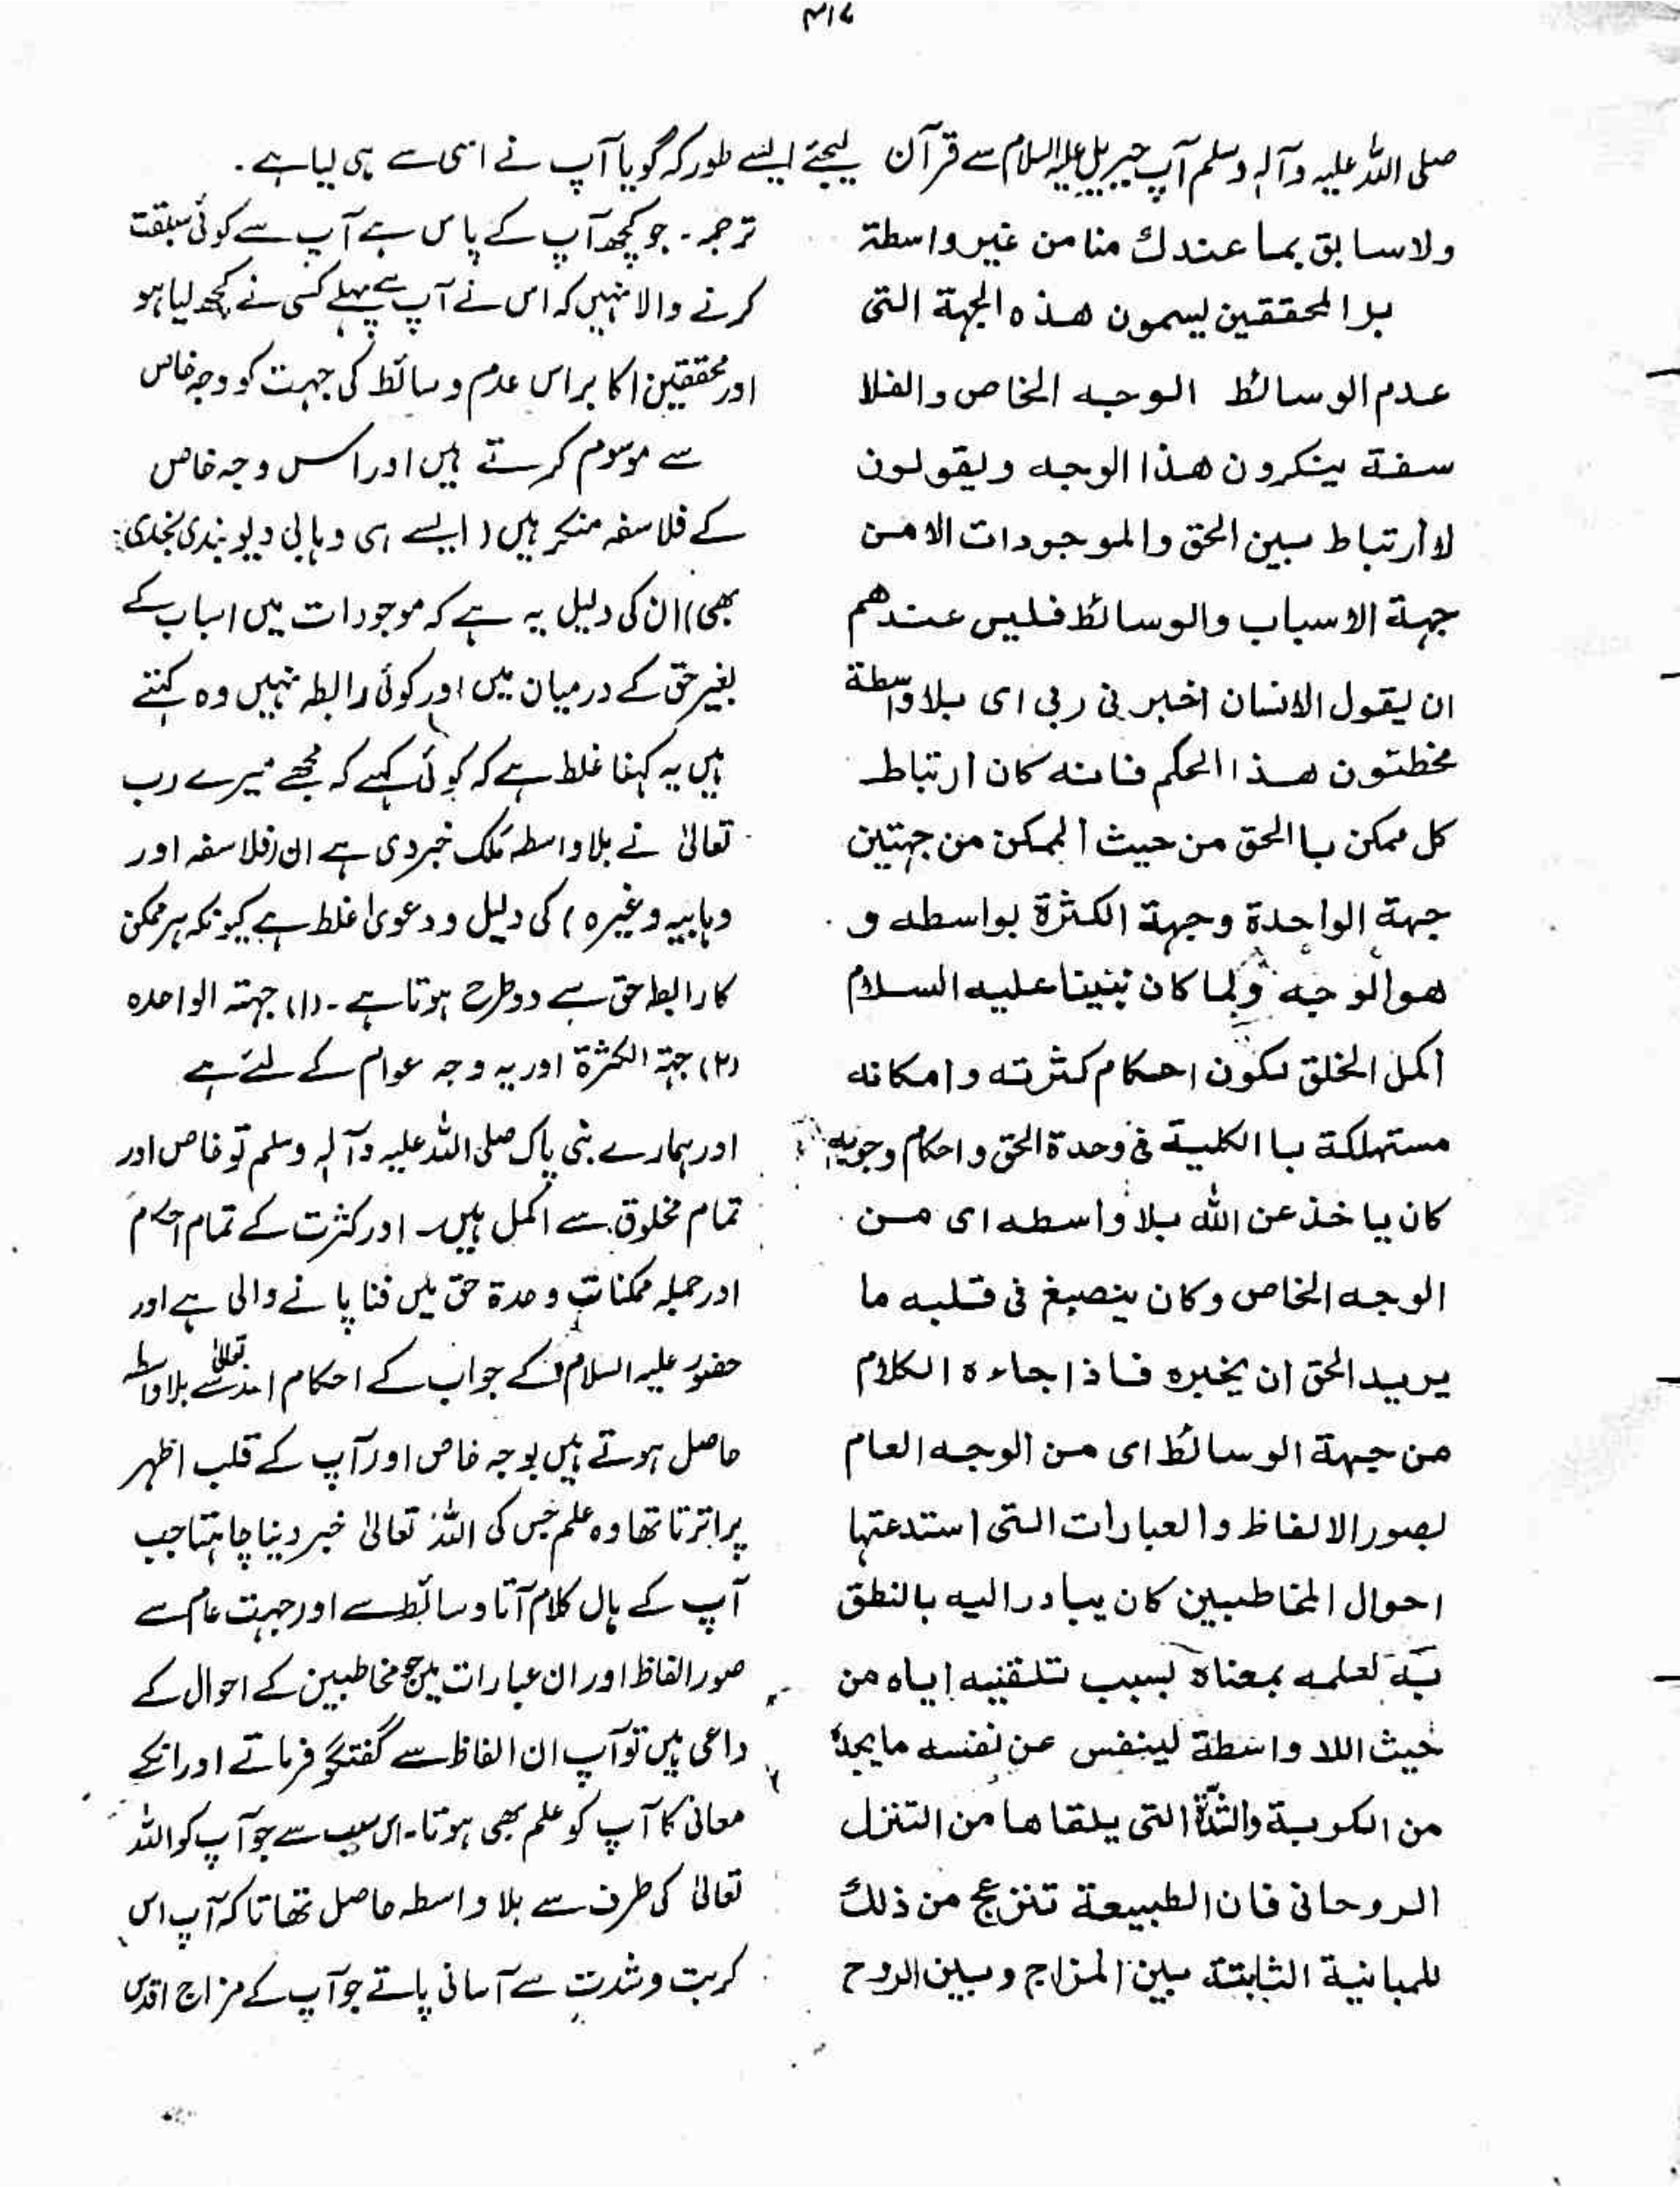 ۴۱۷
صلی اللہ علیہ وآلہ وسلم آپ جبریل علیہ السلام سے قرآن لیجئے ایسے طور کہ گویا آپ نے اسی سے ہی لیا ہے۔
ولا سابق بما عندك منا من غير واسطة
بل المحققين يسمون هذه الجهة التى
عدم الوسائط الوجه الخاص والفلا
سفة ينكرون هذا الوجه ويقولون
لا أرتباط بين الحق والموجودات الا من
جهة الاسباب والوسائط فليس عندهم
ان يقول الانسان اخبرنى ربى اى بلا واسطة
مخطئون هذا الحكم فانه كان ارتباط
كل ممكن با الحق من حيث الممكن من جهتين
جهة الواحدة وجهة الكثرة بواسطه و
هو الوجه ولما كان نبينا عليه السلام
اكمل الخلق تكون احكام كثرته وامكانه
مستهلكة با الكلية فى وحدة الحق واحكام وجوبه
كان ياخذ عن الله بلا واسطه اى من
الوجه الخاص وكان ينصبغ فى قلبه ما
يريد الحق ان يخبره فاذا جاءه الكلام
من جهة الوسائط اى من الوجه العام
بصور الالفاظ والعبارات التى استدعتها
احوال المخاطبين كان يبادر اليه بالنطق
به لعلمه بمعناه بسبب تلقينه اياه من
حيث اللا واسطة لينفس عن نفسه ما يجده
من الكربة والشدة التى يلقاها من التنزل
الروحانى فان الطبيعة تنزعج من ذلك
للمباينية الثابتة بين المزاج وبين الروح
ترجمہ۔ جو کچھ آپ کے پاس ہے آپ سے کوئی سبقت
کرنے والا نہیں کہ اس نے آپ سے پہلے کسی نے کچھ لیا ہو
اور محققین اکابر اس عدم وسائط کی جہت کو وجہ خاص
سے موسوم کرتے ہیں اور اس وجہ خاص
کے فلاسفہ منکر ہیں (ایسے ہی وہابی دیوبندی نجدی
بھی) ان کی دلیل یہ ہے کہ موجودات میں اسباب کے
بغیر حق کے درمیان میں اور کوئی رابطہ نہیں وہ کہتے
ہیں یہ کہنا غلط ہے کہ کوئی کہے کہ مجھے میرے رب
تعالیٰ نے بلا واسطہ مَلک خبر دی ہے ان (فلاسفہ اور
وہابیہ وغیرہ) کی دلیل و دعویٰ غلط ہے کیونکہ ہر ممکن
کا رابطہ حق سے دو طرح ہوتا ہے۔ (۱) جہتہ الواحدہ
(۲) جہتہ الکثرۃ اور یہ وجہ عوام کے لئے ہے
اور ہمارے نبی پاک صلی اللہ علیہ وآلہ وسلم تو خاص اور
تمام مخلوق سے اکمل ہیں۔ اور کثرت کے تمام احکام
اور جملہ ممکنات وحدۃ حق میں فنا پانے والی ہے اور
حضور علیہ السلام کے جواب کے احکام اللہ تعالیٰ سے بلا واسطہ
حاصل ہوتے ہیں بوجہ خاص اور آپ کے قلب اظہر
پر اترتا تھا وہ علم جس کی اللہ تعالیٰ خبر دینا چاہتا جب
آپ کے ہاں کلام آتا وسائط سے اور جہت عام سے
صور الفاظ اور ان عبارات میں جو مخاطبین کے احوال کے
داعی ہیں تو آپ ان الفاظ سے گفتگو فرماتے اور انکے
معانی کا آپ کو علم بھی ہوتا۔ اس سبب سے جو آپ کو اللہ
تعالیٰ کی طرف سے بلا واسطہ حاصل تھا تاکہ آپ اس
کربت و شدت سے آسانی پاتے جو آپ کے مزاج اقدس